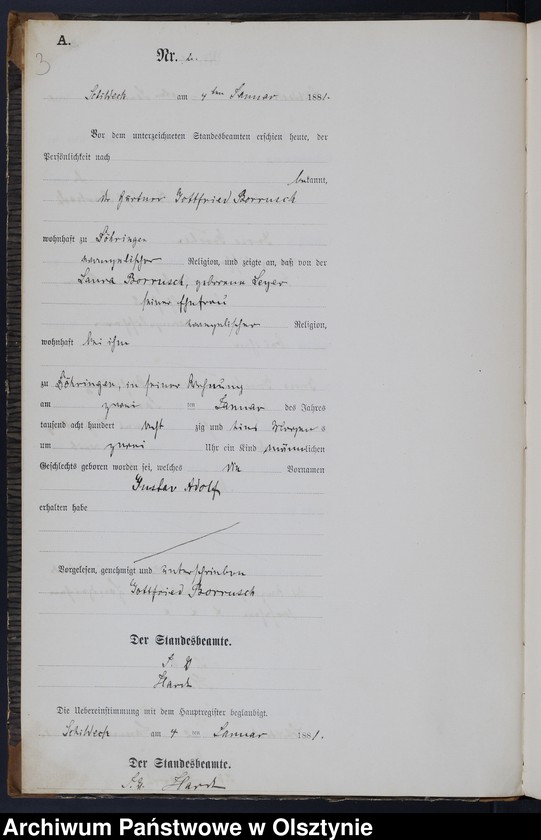 A.
3
Nr. 2.
Schildeck am 4ten Januar 1881.
Vor dem unterzeichneten Standesbeamten erschien heute, der
Persönlichkeit nach
bekannt,
der Gärtner Gottfried Borrusch
wohnhaft zu Döhringen
evangelischer Religion, und zeigte an, daß von der
Laura Borrusch, geborene Geyer
seiner Ehefrau
evangelischer Religion,
wohnhaft bei ihm
zu Döhringen, in seiner Wohnung
am zwei ten Januar des Jahres
tausend acht hundert acht zig und eins Morgens
um zwei Uhr ein Kind männlichen
Geschlechts geboren worden sei, welches die Vornamen
Gustav Adolf
erhalten habe
Vorgelesen, genehmigt und unterschrieben
Gottfried Borrusch
Der Standesbeamte.
Hardt
Die Uebereinstimmung mit dem Hauptregister beglaubigt.
Schildeck am 4 ten Januar 1881.
Der Standesbeamte.
Hardt
Archiwum Państwowe w Olsztynie